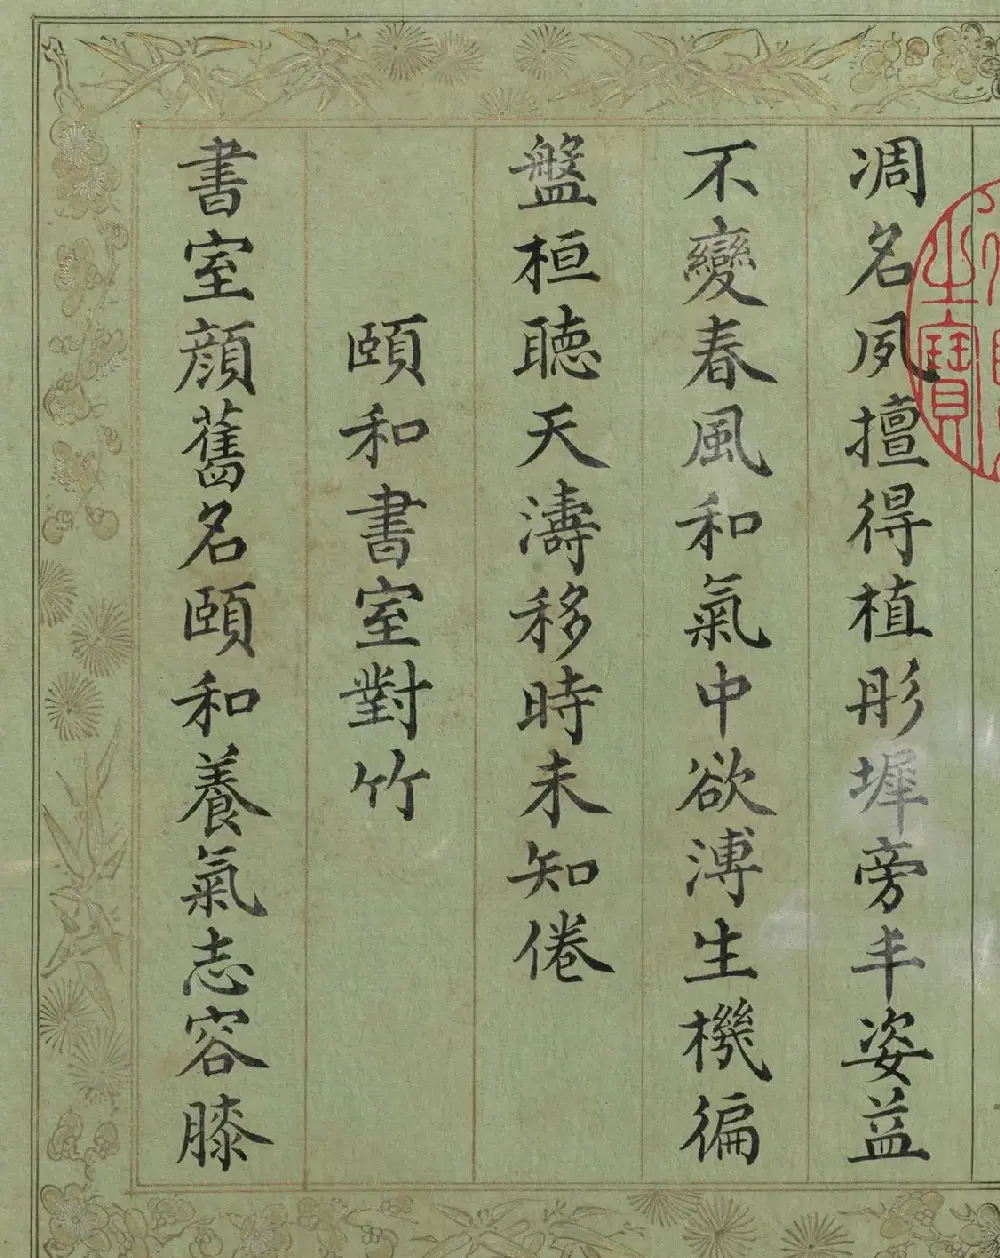 之寶
凋名夙擅得植彤墀旁丰姿益
不變春風和氣中欲溥生機徧
盤桓聽天濤移時未知倦
頤和書室對竹
書室顏舊名頤和養氣志容膝